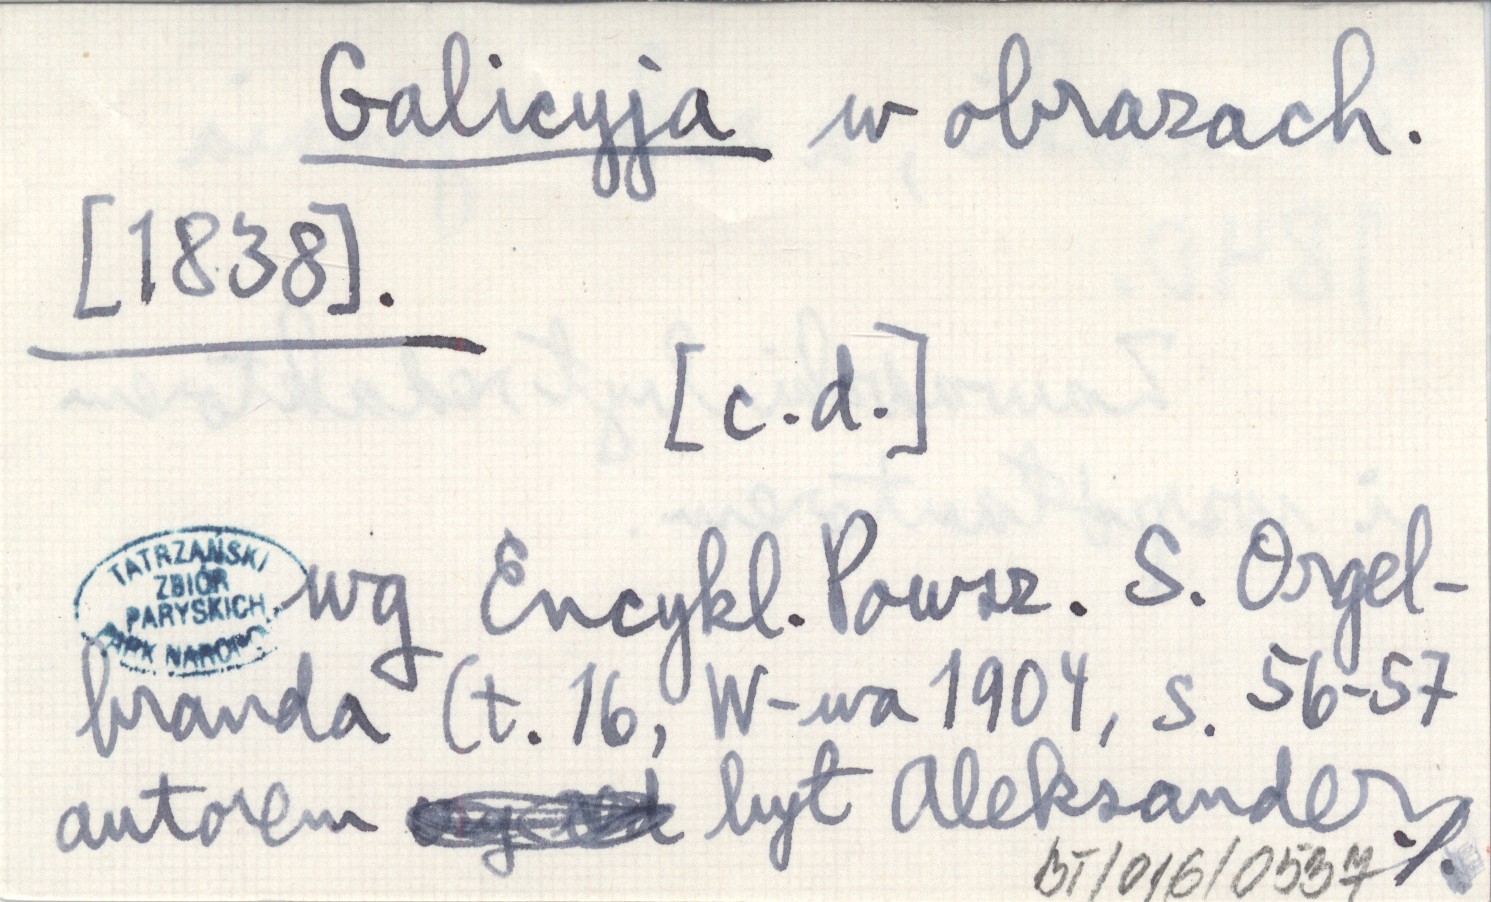 Galicyja w obrazach.
[1838].
[c.d.]
TATRZAŃSKI
ZBIÓR
PARYSKICH
PARK NAROD.
wg Encykl. Powsz. S. Orgel-
branda (t. 16, W-wa 1904, s. 56-57
autorem był Aleksander
·/.
BT/016/0537